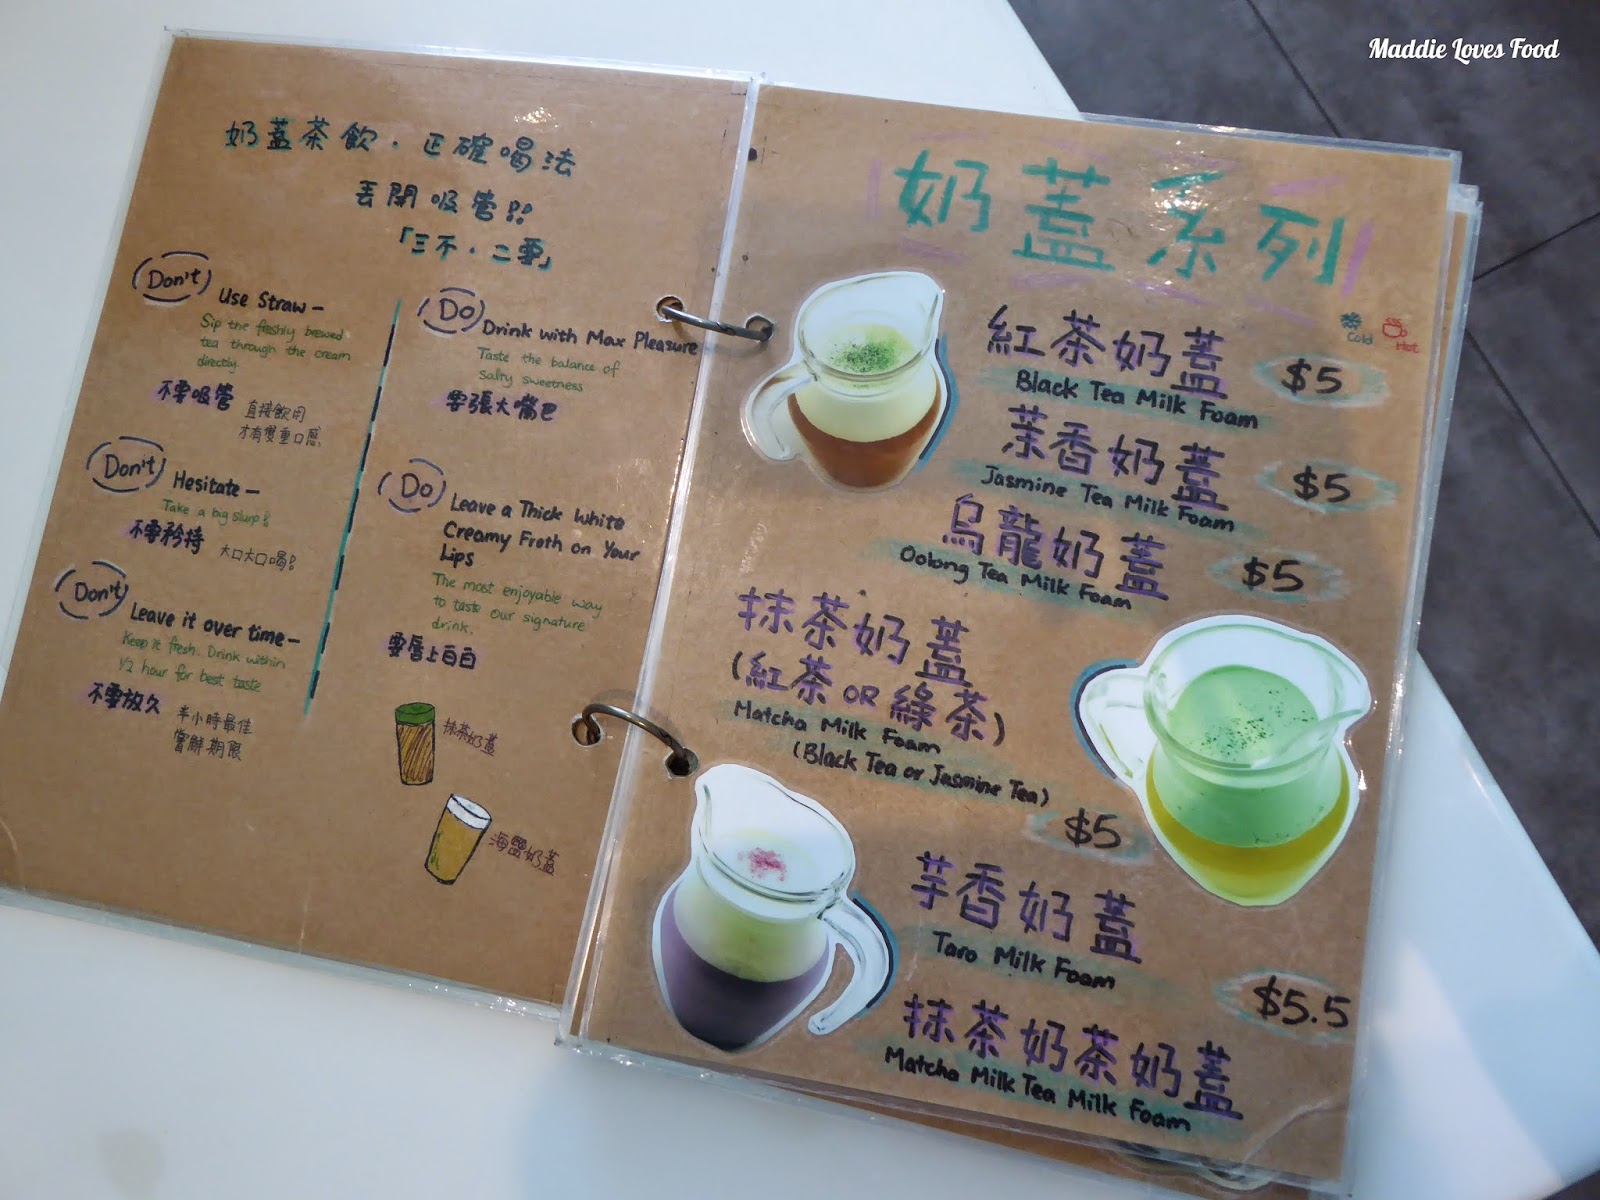 Maddie Loves Food
奶蓋茶飲．正確喝法
丟開吸管!?
「三不．二要」
Don't
Use Straw –
Sip the freshly brewed
tea through the cream
directly.
不要吸管
直接飲用
才有雙重口感
Don't
Hesitate –
Take a big slurp!
不要矜持
大口大口喝!
Don't
Leave it over time –
Keep it fresh. Drink within
1/2 hour for best taste
不要放久
半小時最佳
嘗鮮期限
Do
Drink with Max Pleasure
Taste the balance of
salty sweetness
要張大嘴巴
Do
Leave a Thick White
Creamy Froth on Your
Lips
The most enjoyable way
to taste our signature
drink.
要唇上白白
抹茶奶蓋
海鹽奶蓋
奶蓋系列
Cold
Hot
紅茶奶蓋
$5
Black Tea Milk Foam
茉香奶蓋
$5
Jasmine Tea Milk Foam
烏龍奶蓋
$5
Oolong Tea Milk Foam
抹茶奶蓋
(紅茶 OR 綠茶)
Matcha Milk Foam
(Black Tea or Jasmine Tea)
$5
芋香奶蓋
Taro Milk Foam
$5.5
抹茶奶茶奶蓋
Matcha Milk Tea Milk Foam